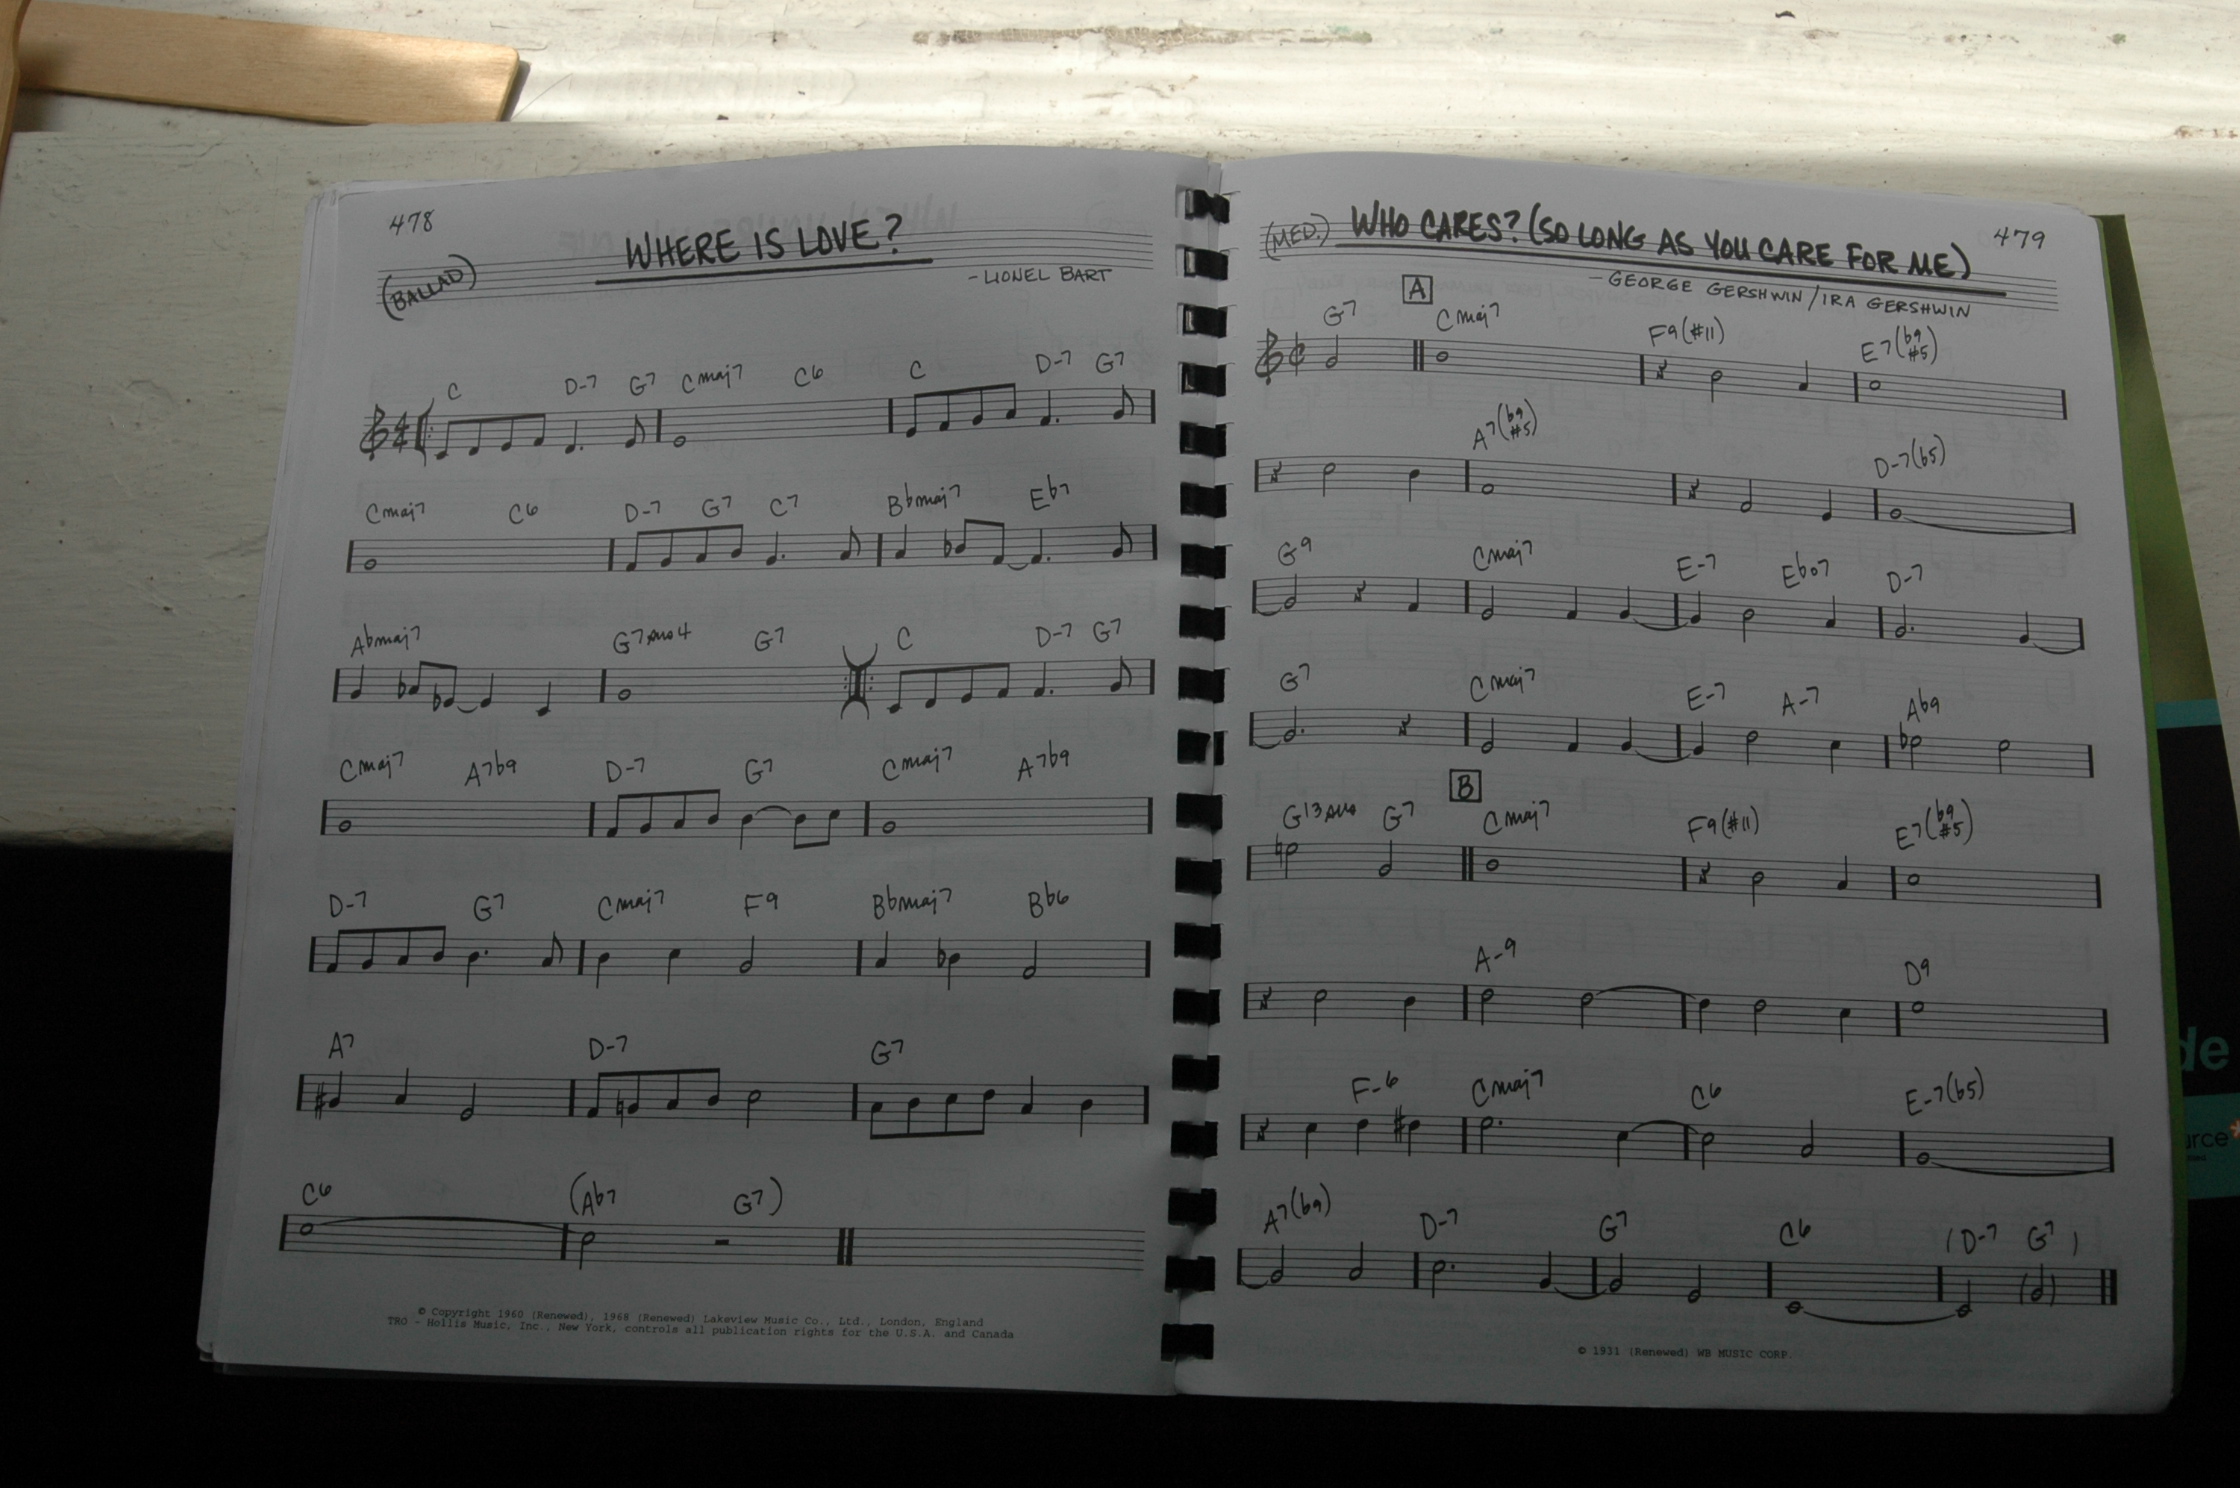 478
WHERE IS LOVE?
(BALLAD)
- LIONEL BART
C D-7 G7 Cmaj7 C6 C D-7 G7
Cmaj7 C6 D-7 G7 C7 Bbmaj7 Eb7
Abmaj7 G7sus4 G7 C D-7 G7
Cmaj7 A7b9 D-7 G7 Cmaj7 A7b9
D-7 G7 Cmaj7 F9 Bbmaj7 Bb6
A7 D-7 G7
C6 (Ab7 G7)
© Copyright 1960 (Renewed), 1968 (Renewed) Lakeview Music Co., Ltd., London, England
TRO - Hollis Music, Inc., New York, controls all publication rights for the U.S.A. and Canada
479
(MED.) WHO CARES? (SO LONG AS YOU CARE FOR ME)
- GEORGE GERSHWIN / IRA GERSHWIN
A
G7 Cmaj7 F9(#11) E7(b9 #5)
A7(b9 #5) D-7(b5)
G9 Cmaj7 E-7 Ebo7 D-7
G7 Cmaj7 E-7 A-7 Ab9
B
G13sus G7 Cmaj7 F9(#11) E7(b9 #5)
A-9 D9
F-6 Cmaj7 C6 E-7(b5)
A7(b9) D-7 G7 C6 (D-7 G7)
© 1931 (Renewed) WB MUSIC CORP.
de
urce*